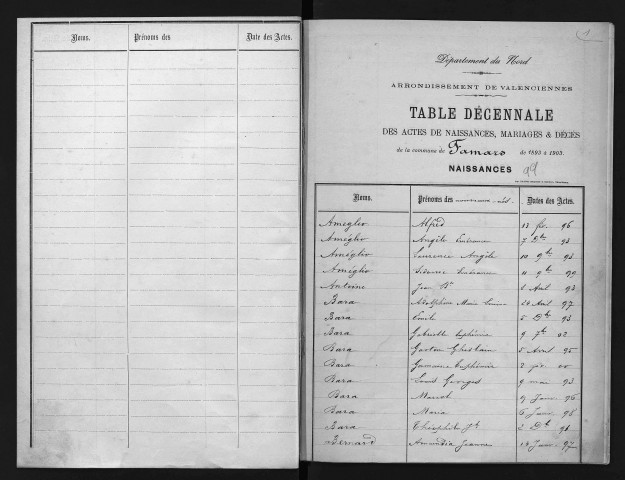 Noms. Prénoms des Date des Actes.
1
Département du Nord
ARRONDISSEMENT DE VALENCIENNES
TABLE DÉCENNALE
DES ACTES DE NAISSANCES, MARIAGES & DÉCÈS
de la commune de Famars de 1893 à 1903.
NAISSANCES
Noms. Prénoms des Dates des Actes.
Améglio Alfred 13 96
Améglio Angèle 7 Dbre 93
Améglio Laurence Angèle 10 9bre 93
Améglio 11 9bre
Antoine Jean Bte Avril 93
Bara Adolphine Marie 24 Avril 97
Bara Emile 5 Dbre 93
Bara Gabrielle Euphémie 9 7bre 02
Bara Gaston Ghislain 5 Avril 95
Bara Germaine Euphémie 2 00
Bara Louis Georges 9 mai 93
Bara Marcel 9 Janv 96
Bara Maria 6 Janv
Bara Théophile Jh 2 Dbre
Bernard Jeanne 14 Janv 97